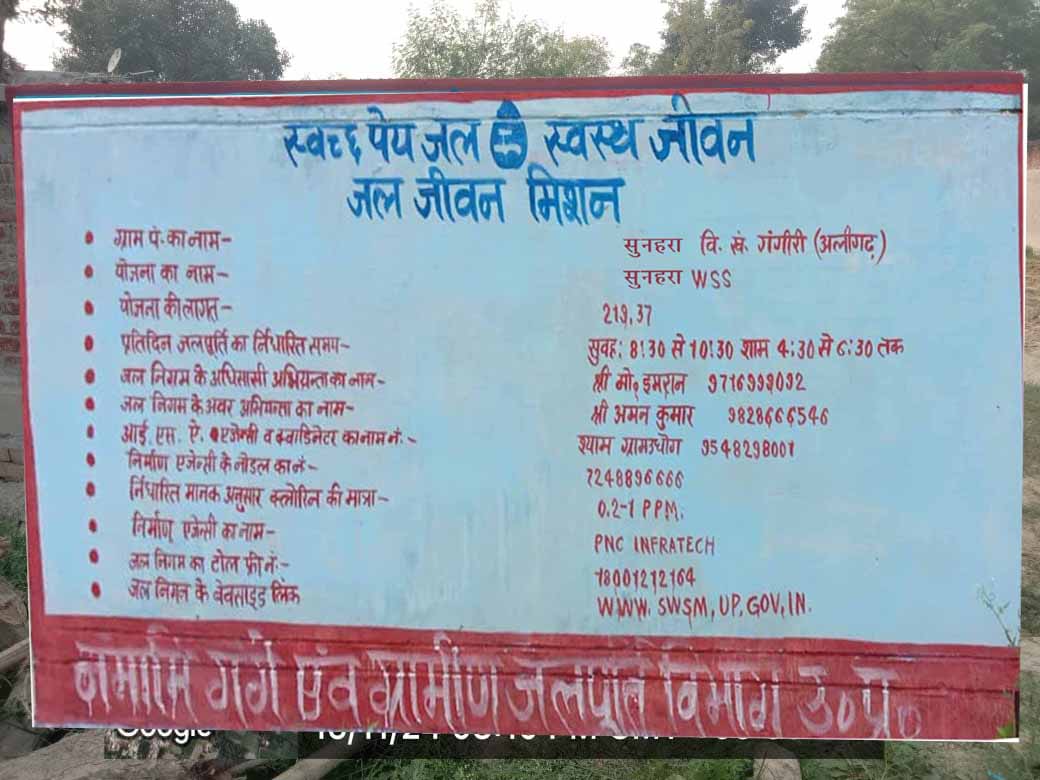 स्वच्छ पेय जल स्वस्थ जीवन
जल जीवन मिशन
ग्राम पं. का नाम- सुनहरा वि. खं. गंगीरी (अलीगढ़)
योजना का नाम- सुनहरा WSS
योजना की लागत- 219.37
प्रतिदिन जलपूर्ति का र्निधारित समय- सुवह: 8:30 से 10:30 शाम 4:30 से 6:30 तक
जल निगम के अधिसासी अभियन्ता का नाम- श्री मो० इमरान 9716999092
जल निगम के अवर अभियन्ता का नाम- श्री अमन कुमार 9828666546
आई. एस. ऐ. एजेन्सी व क्वाडिनेटर का नाम नं.- श्याम ग्रामउधोग 9548298001
निर्माण एजेन्सी के नोडल का नं- 7248896666
र्निधारित मानक अनुसार क्लोरिन की मात्रा- 0.2-1 PPM.
निर्माण एजेन्सी का नाम- PNC INFRATECH
जल निगम का टोल फ्री नं:- 18001212164
जल निगम के बेवसाइड लिंक WWW. SWSM, UP, GOV, IN.
नमामि गंगे एंव ग्रामीण जलपूर्ति विभाग उ० प्र०
Google